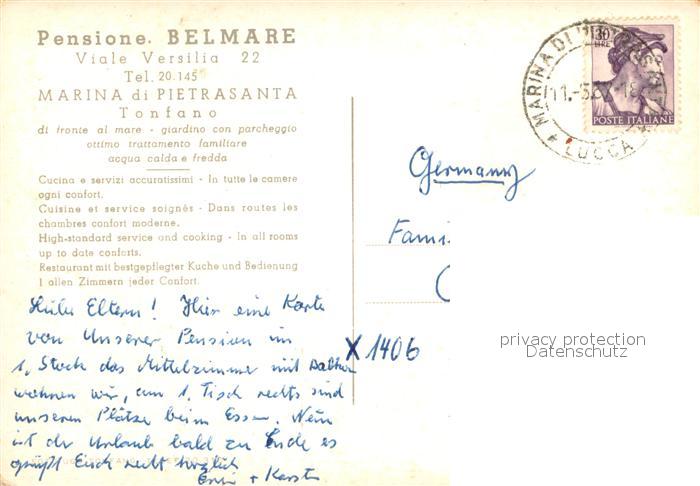 Pensione. BELMARE
Viale Versilia 22
Tel. 20.145
MARINA di PIETRASANTA
Tonfano
di fronte al mare - giardino con parcheggio
ottimo trattamento familiare
acqua calda e fredda
Cucina e servizi accuratissimi - In tutte le camere
ogni confort.
Cuisine et service soignés - Dans routes les
chambres confort moderne.
High-standard service and cooking - In all rooms
up to date conforts.
Restaurant mit bestgepflegter Kuche und Bedienung
I allen Zimmern jeder Confort.
Eltern! Hier eine Karte
von unserer Pension im
1. Stock das Mittelzimmer mit
wohnen wir, am 1. Tisch rechts sind
unseren Plätze beim Essen. Nun
ist der Urlaub bald zu Ende es
grüßt Euch recht herzlich
+ Karsten
30
LIRE
POSTE ITALIANE
MARINA DI
LUCCA
Germany
Fami
X 1406
privacy protection
Datenschutz